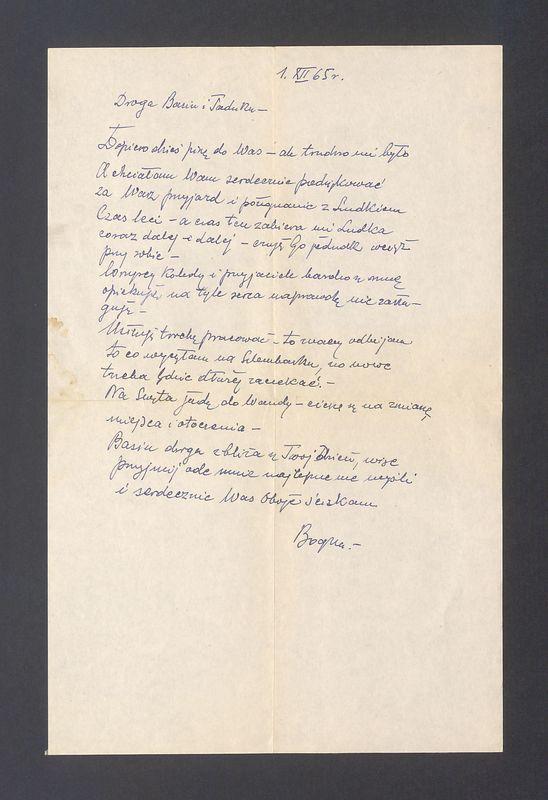 1. XII 65 r.
Droga Basiu i Tadziku –
Dopiero dziś piszę do Was – ale trudno mi było
A chciałam Wam serdecznie podziękować
za Wasz przyjazd i pożegnanie z Ludkiem
Czas leci – a czas ten zabiera mi Ludka
coraz dalej i dalej – czuję Go jednak wciąż
przy sobie –
Wszyscy Koledzy i przyjaciele bardzo się mną
opiekują, na tyle serca naprawdę nie zasłu-
guję –
Usiłuję trochę pracować – to znaczy odbijam
to co wyczytam na, no nowe
trzeba będzie dłużej zaczekać. –
Na Święta jadę do Wandy – cieszę się na zmianę
miejsca i otoczenia –
Basiu droga zbliża się Twój Dzień, więc
przyjmij ode mnie najlepsze me myśli
i serdecznie Was Oboje ściskam
Bogna. –